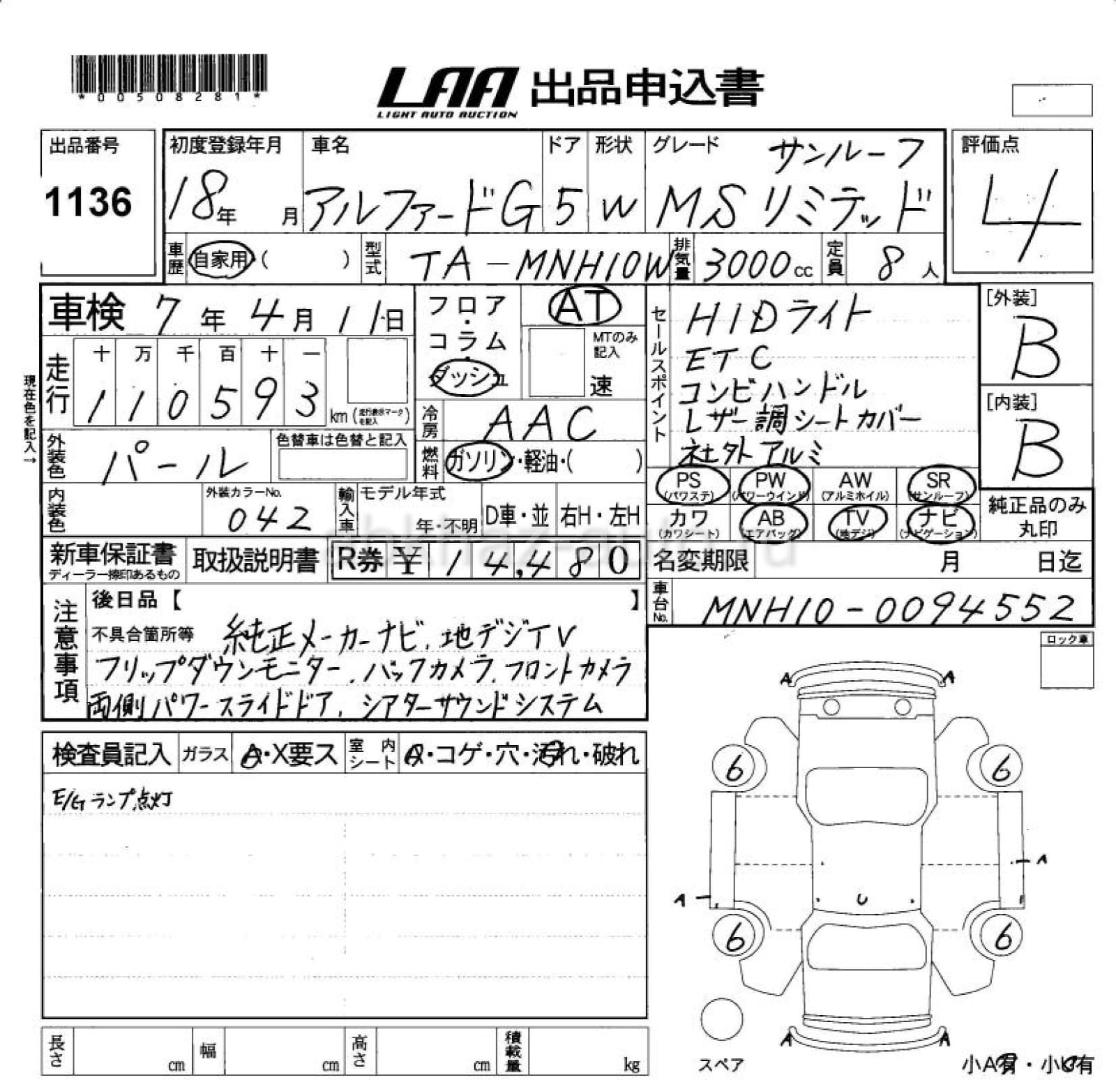 *00508281*
LAA 出品申込書
LIGHT AUTO AUCTION
出品番号
1136
初度登録年月
18年 月
車名
アルファードG
ドア
5
形状
W
グレード
サンルーフ
MSリミテッド
評価点
4
車歴 自家用( )
型式 TA-MNH10W
排気量 3000cc
定員 8人
車検 7年4月11日
フロア・コラム・ダッシュ
AT
MTのみ記入
速
現在色を記入→
走行
十 万 千 百 十 一
110593
km(走行表示マークを記入)
冷房 AAC
外装色 パール
色替車は色替と記入
燃料 ガソリン・軽油・( )
内装色
外装カラーNo.
042
輸入車
モデル年式
年・不明
D車・並
右H・左H
セールスポイント
HIDライト
ETC
コンビハンドル
レザー調シートカバー
社外アルミ
[外装]
B
[内装]
B
PS (パワステ)
PW (パワーウインド)
AW (アルミホイル)
SR (サンルーフ)
カワ (カワシート)
AB (エアバッグ)
TV (地デジ)
ナビ (ナビゲーション)
純正品のみ丸印
新車保証書
ディーラー捺印あるもの
取扱説明書
R券 ¥14,480
名変期限 月 日迄
車台No. MNH10-0094552
注意事項
後日品【 】
不具合箇所等 純正メーカーナビ、地デジTV
フリップダウンモニター、バックカメラ、フロントカメラ
両側パワースライドドア、シアターサウンドシステム
ロック車
検査員記入
ガラス A・X要ス
室内シート A・コゲ・穴・汚れ・破れ
E/Gランプ点灯
A A
6 6
A
A
U
6 6
A A
スペア
小A有・小U有
長さ cm
幅 cm
高さ cm
積載量 kg
abkhaz-auto.ru